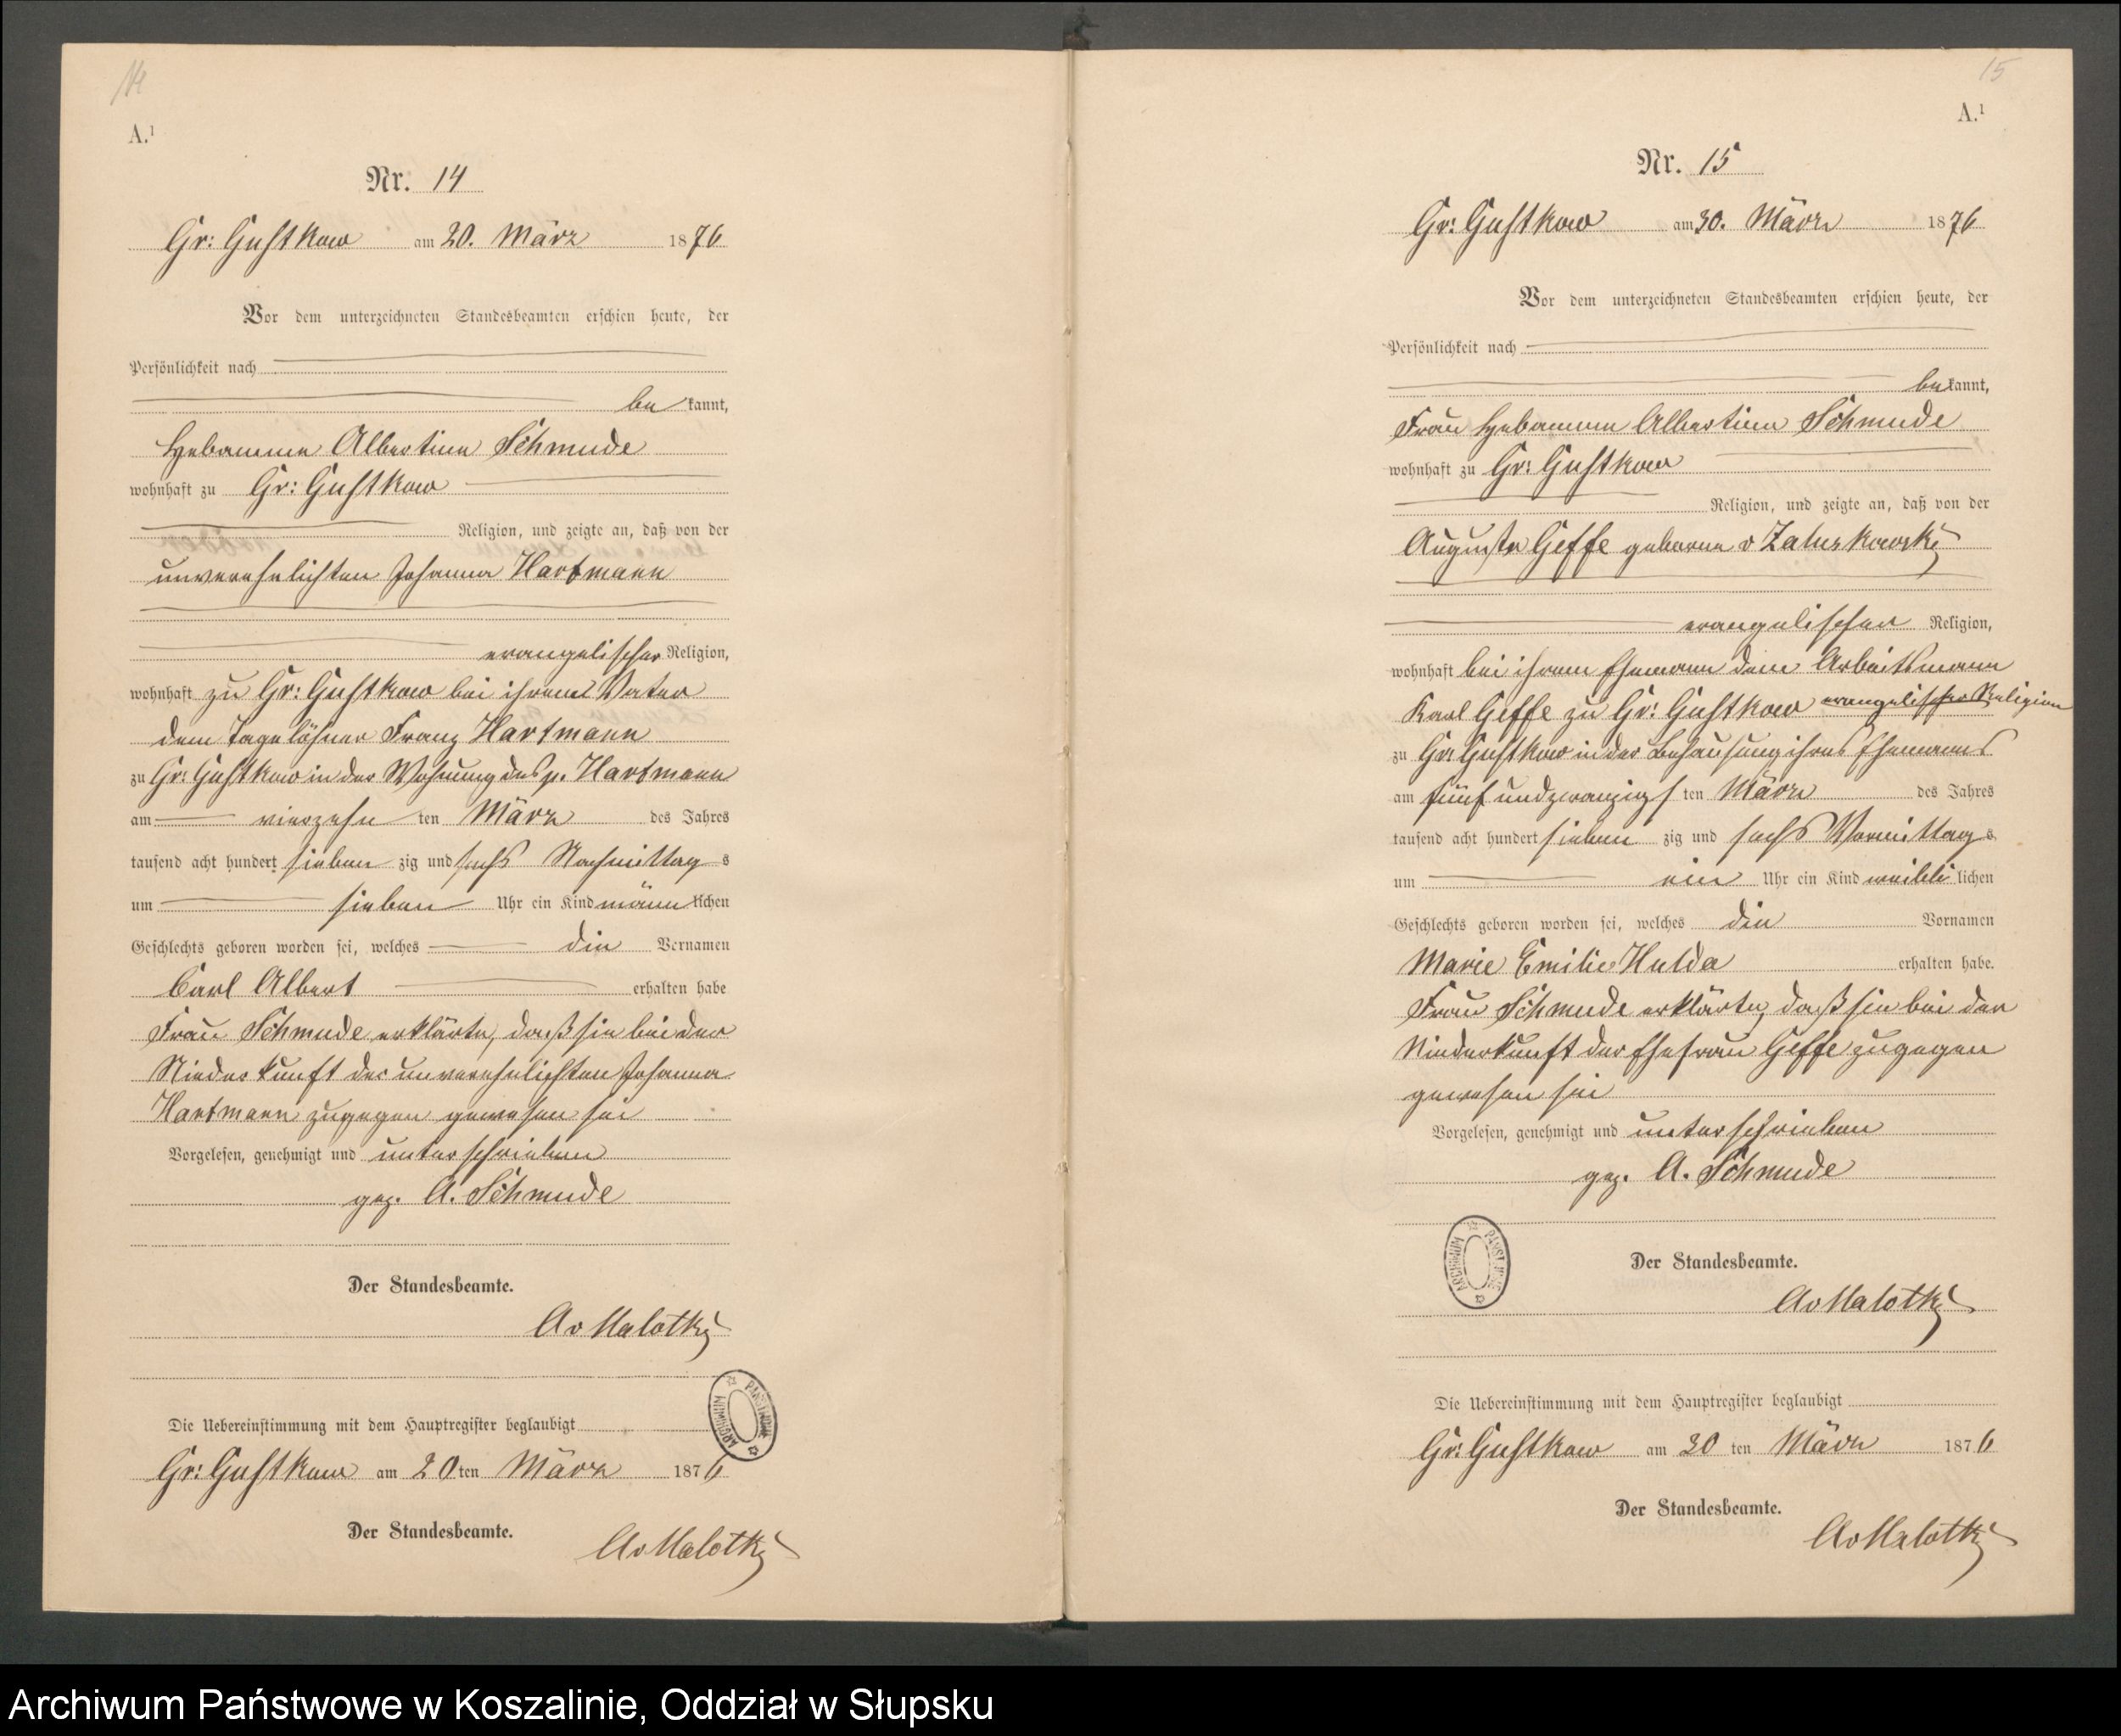 14
A.¹
Nr. 14
Gr: Gustkow am 20. März 1876
Vor dem unterzeichneten Standesbeamten erschien heute, der
Persönlichkeit nach
be kannt,
Hebamme Albertine Schmude
wohnhaft zu Gr: Gustkow
Religion, und zeigte an, daß von der
unverehelichten Johanna Hartmann
evangelischer Religion,
wohnhaft zu Gr: Gustkow bei ihrem Vater
dem Tagelöhner Franz Hartmann
zu Gr: Gustkow in der Wohnung des p. Hartmann
am vierzehn ten März des Jahres
tausend acht hundert sieben zig und sechs Nachmittag s
um sieben Uhr ein Kind männ lichen
Geschlechts geboren worden sei, welches die Vornamen
Carl Albert erhalten habe
Frau Schmude erklärte, daß sie bei der
Niederkunft der unverehelichten Johanna
Hartmann zugegen gewesen sei
Vorgelesen, genehmigt und unterschrieben
gez. A. Schmude
Der Standesbeamte.
A v Malotki
Die Uebereinstimmung mit dem Hauptregister beglaubigt
Gr: Gustkow am 20 ten März 1876
Der Standesbeamte.
A v Malotki
15
A.¹
Nr. 15
Gr: Gustkow am 30. März 1876
Vor dem unterzeichneten Standesbeamten erschien heute, der
Persönlichkeit nach
be kannt,
Frau Hebamme Albertine Schmude
wohnhaft zu Gr: Gustkow
Religion, und zeigte an, daß von der
Auguste Geffe geborne v Zatuskowski
evangelischer Religion,
wohnhaft bei ihrem Ehemann dem Arbeitsmann
Karl Geffe zu Gr: Gustkow evangelischer Religion
zu Gr: Gustkow in der Behausung ihres Ehemanns
am fünf und zwanzigs ten März des Jahres
tausend acht hundert sieben zig und sechs Vormittag s
um ein Uhr ein Kind weibli lichen
Geschlechts geboren worden sei, welches die Vornamen
Marie Emilie Hulda erhalten habe.
Frau Schmude erklärte, daß sie bei der
Niederkunft der Ehefrau Geffe zugegen
gewesen sei
Vorgelesen, genehmigt und unterschrieben
gez. A. Schmude
Der Standesbeamte.
A v Malotki
Die Uebereinstimmung mit dem Hauptregister beglaubigt
Gr: Gustkow am 30 ten März 1876
Der Standesbeamte.
A v Malotki
Archiwum Państwowe w Koszalinie, Oddział w Słupsku